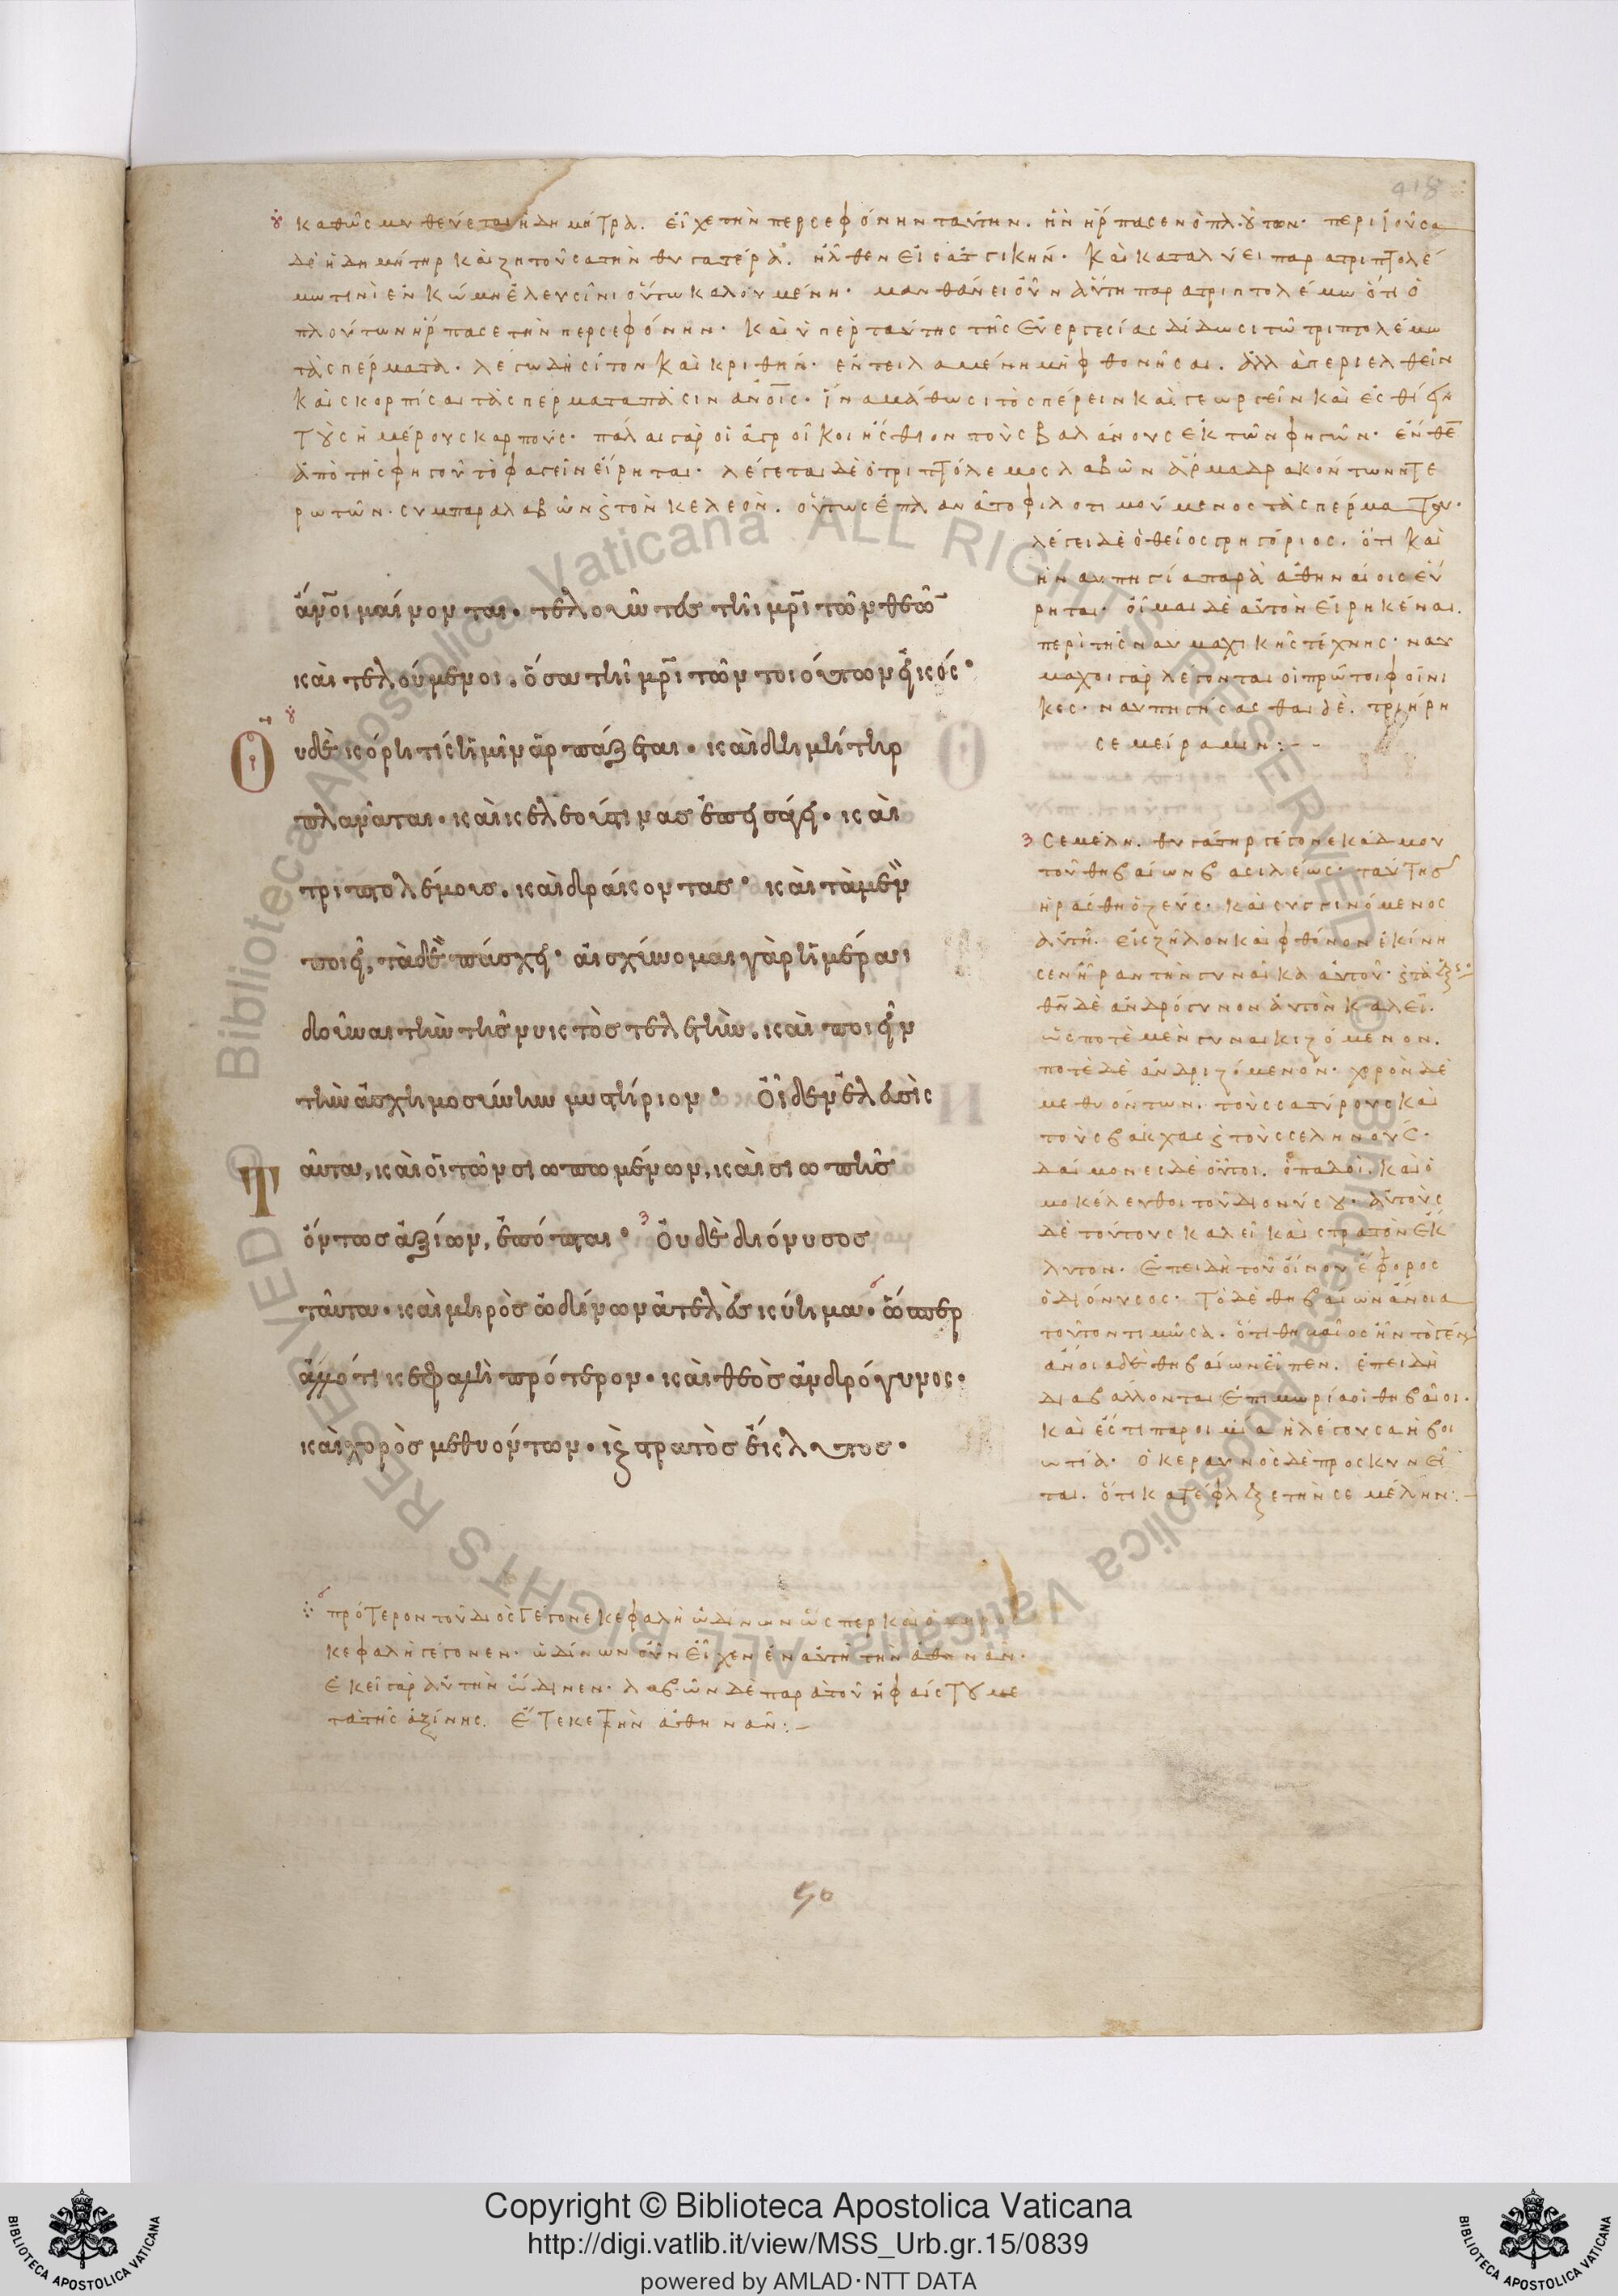 418
καθὼς μυθεύεται ἡ δημήτρα. εἶχε τὴν περσεφόνην ταύτην. ἣν ἥρπασεν ὁ πλούτων. περιϊοῦσα
δὲ ἡ δημήτηρ καὶ ζητοῦσα τὴν θυγατέρα. ἦλθεν εἰς ἀττικήν. καὶ καταλύει παρα τριπτολέ
μω τινὶ ἐν κώμη ἐλευσῖνι οὕτω καλουμένη. μανθάνει οὖν αὕτη παρα τριπτολέμω ὅτι ὁ
πλούτων ἥρπασε τὴν περσεφόνην. καὶ ὑπὲρ ταύτης τῆς εὐεργεσίας δίδωσι τῶ τριπτολέμω
τὰ σπέρματα. λέγω δὴ σίτον καὶ κριθήν. ἐντειλαμένη μὴ φθονῆσαι. ἀλλὰ περιελθεῖν
καὶ σκορπίσαι τὰ σπέρματα πᾶσιν ἀνοῖς. ἵνα μάθωσι τὸ σπέρειν καὶ γεωργεῖν καὶ ἐσθίειν
τοὺς ἡμέρους καρπούς. πάλαι γὰρ οἱ ἀγροῖκοι ἤσθιον τοὺς βαλάνους ἐκ τῶν φηγῶν. ἔνθε
ἀπὸ τῆς φηγοῦ τὸ φαγεῖν εἴρηται. λέγεται δὲ ὁ τριπτόλεμος λαβὼν ἅρμα δρακόντων πτε
ρωτῶν. συμπαραλαβὼν ϛ τὸν κελεόν. οὕτως ἐπλανᾶτο φιλοτιμούμενος τὰ σπέρματα.
λέγει δὲ ὁ θεῖος γρηγόριος. ὅτι καὶ
ἡ ναυπηγία παρὰ ἀθηναίοις εὕ
ρηται. οἶμαι δὲ αὐτὸν εἰρηκέναι.
περὶ τῆς ναυμαχικῆς τέχνης. ναύ
μαχοι γὰρ λέγονται οἱ πρῶτοι φοίνι
κες. ναυπηγήσασθαι δὲ. τριήρη
σεμείραμιν:--
ἄνοι μαίνονται. τελοῦντες τῆι μρὶ τῶν θεῶν
καὶ τελούμενοι. ὅσα τῆι μρὶ τῶν τοιούτων εἰκός.
Οὐδὲ κόρη τίς ἡμῖν ἁρπάζεται. καὶ δημήτηρ
πλανᾶται. καὶ κελεούς τινας ἐπεισάγει. καὶ
τριπτολέμους. καὶ δράκοντας. καὶ τὰ μὲν
ποιεῖ, τὰ δὲ πάσχει. αἰσχύνομαι γὰρ ἡμέραι
δοῦναι τὴν τῆς νυκτὸς τελετὴν. καὶ ποιεῖν
τὴν ἀσχημοσύνην μυστήριον. Οἶδεν ἐλευσὶς
Ταῦτα, καὶ οἱ τῶν σιωπωμένων, καὶ σιωπῆς
ὄντως ἀξίων, ἐπόπται. Οὐδὲ διόνυσος
ταῦτα. καὶ μηρὸς ὠδίνων ἀτελὲς κύημα. ὥσπερ
ἄλλό τι κεφαλὴ πρότερον. καὶ θεὸς ἀνδρόγυνος.
καὶ χορὸς μεθυόντων. κ στρατὸς ἔκλυτος.
Σεμέλη. θυγάτηρ γέγονε κάδμου
τοῦ θηβαίων βασιλέως. ταύτης
ἠράσθη ὁ ζεύς. καὶ συγγινόμενος
αὐτῆ. εἰς ζῆλον καὶ φθόνον ἐκίνη
σεν ἥραν τὴν γυναῖκα αὐτοῦ.
θὴν δὲ ἀνδρόγυνον αὐτὸν καλεῖ.
ὥς ποτὲ μὲν γυναικιζόμενον.
ποτὲ δὲ ἀνδριζόμενον. χορὸν δὲ
μεθυόντων. τοὺς σατύρους καὶ
τοὺς βάκχας ϛ τοὺς σεληνούς.
δαίμονες δὲ οὗτοι. ὀπαδοὶ. καὶ ὁ
μοκέλευθοι τοῦ διονύσου. αὐτοὺς
δὲ τούτους καλεῖ καὶ στρατὸν ἔκ
λυτον. ἐπειδὴ τοῦ οἴνου ἔφορος
ὁ διόνυσος. τὸ δὲ θηβαίων ἄνοια
τοῦτον τιμῶσα. ὅτι θηβαῖος ἦν τὸ γένος
ἄνοια δὲ θηβαίων εἶπεν. ἐπειδὴ
διαβάλλονται ἐπὶ μωρίᾳ οἱ θηβαῖοι.
καὶ ἔστι παροιμία ἡ λέγουσα ἡ βοι
ωτία. ὁ κεραυνὸς δὲ προσκυνεῖ
ται. ὅτι κατέφλεξε τὴν σεμέλην:-
πρότερον τοῦ διὸς γέγονε κεφαλὴ ὠδίνων ὥσπερ καὶ ὁ μηρὸς
κεφαλὴ γέγονεν. ὠδίνων οὖν εἶχεν ἐν αὐτῆ τὴν ἀθηνᾶν.
ἐκεῖ γὰρ αὐτὴν ὤδινεν. λαβὼν δὲ παρὰ τοῦ ἡφαίστου με
τὰ τῆς ἀξίνης. ἔτεκε τὴν ἀθηνᾶν:-
Copyright © Biblioteca Apostolica Vaticana
http://digi.vatlib.it/view/MSS_Urb.gr.15/0839
powered by AMLAD·NTT DATA
BIBLIOTECA APOSTOLICA VATICANA
BIBLIOTECA APOSTOLICA VATICANA
© Biblioteca Apostolica Vaticana ALL RIGHTS RESERVED
© Biblioteca Apostolica Vaticana ALL RIGHTS RESERVED